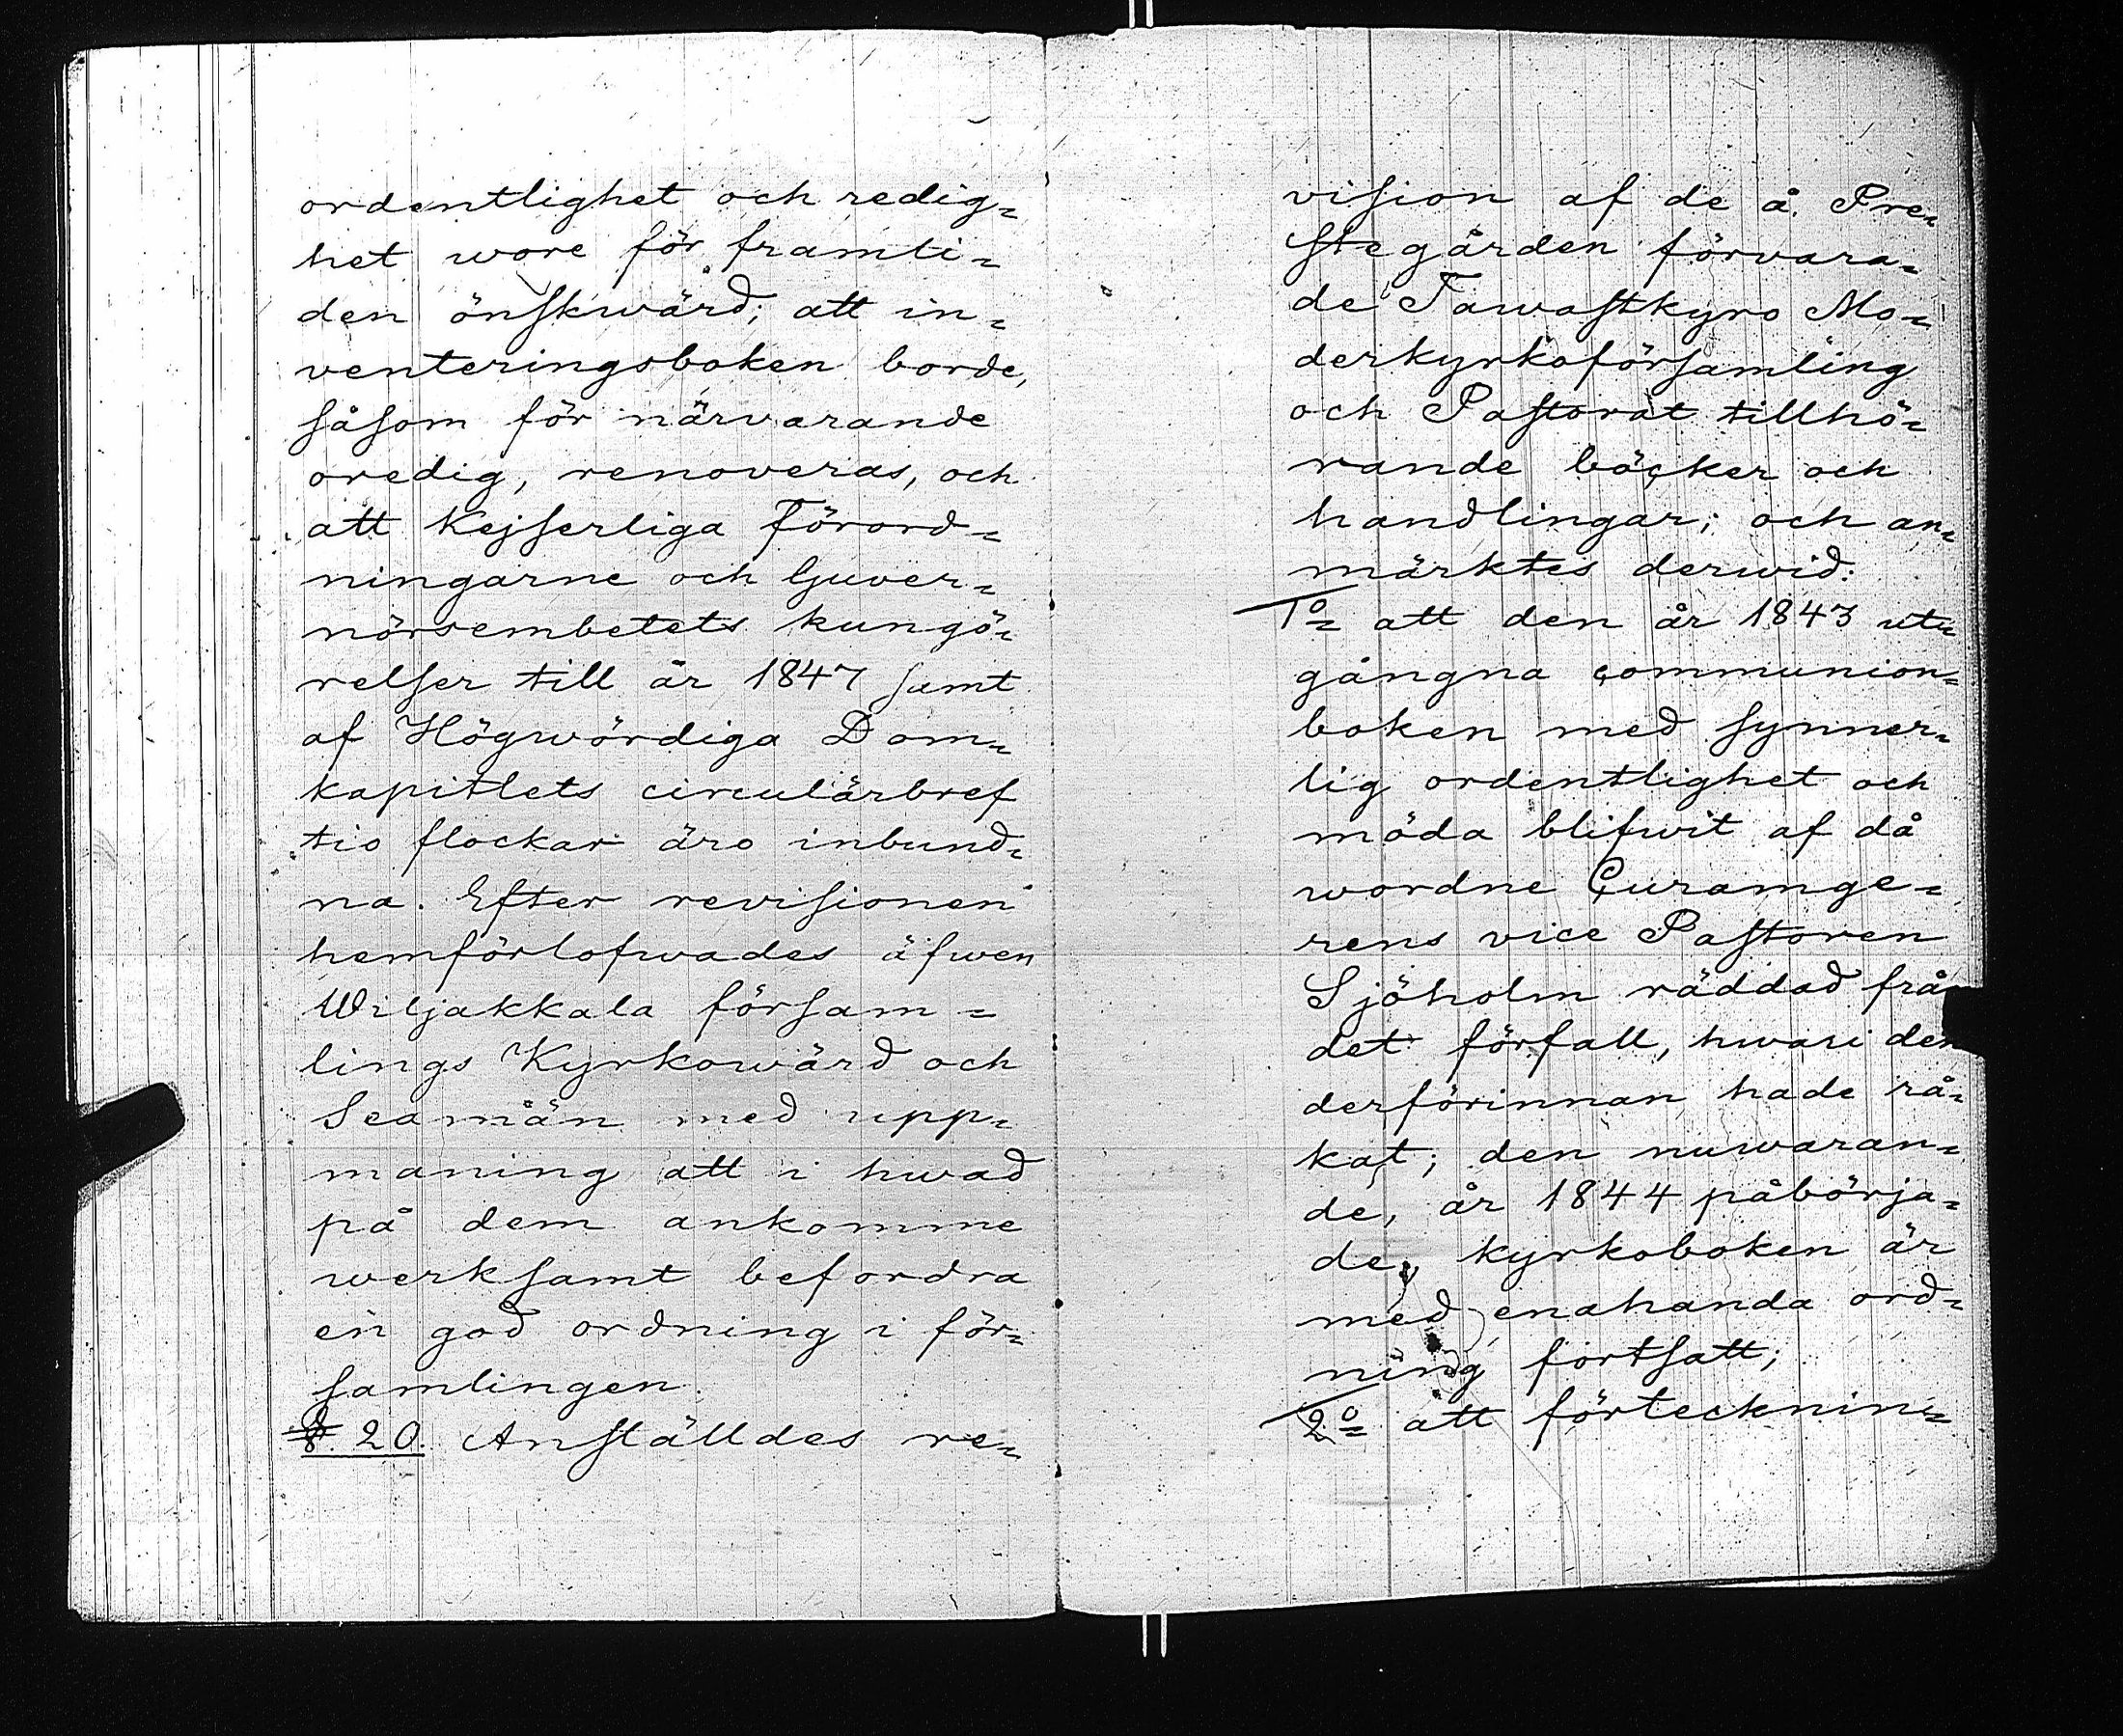 ordentlighet och redig=
het wore för framti=
den önskwärd; att in=
venteringsboken borde,
såsom för närvarande
oredig, renoveras, och
att Kejserliga Förord=
ningarne och Guver=
nörsembetets kungö=
relser till år 1847 samt
af Högwördiga Dom=
kapitlets circulärbref
tio flockar äro inbund=
na. Efter revisionen
hemförlofwades äfwen
Wiljakkala försam=
lings Kyrkowärd och
Sexmän med upp=
maning att i hwad
på dem ankomme
werksamt befordra
en god ordning i för=
samlingen.
§. 20. Anställdes re=
vision af de å Pre=
stegården förvara=
de Tawastkyro Mo=
derkyrkoförsamling
och Pastorat tillhö=
rande böcker och
handlingar; och an=
märktes derwid:
1o= att den år 1843 ut=
gångna communion=
boken med synner=
lig ordentlighet och
möda blifwit af då
wordne Curamge=
rens vice Pastoren
Sjöholm räddad från
det förfall, hwari den
derförinnan hade rå=
kat; den nuwaran=
de, år 1844 påbörja=
de, kyrkoboken är
med enahanda ord=
ning fortsatt;
2o= att förtecknin=